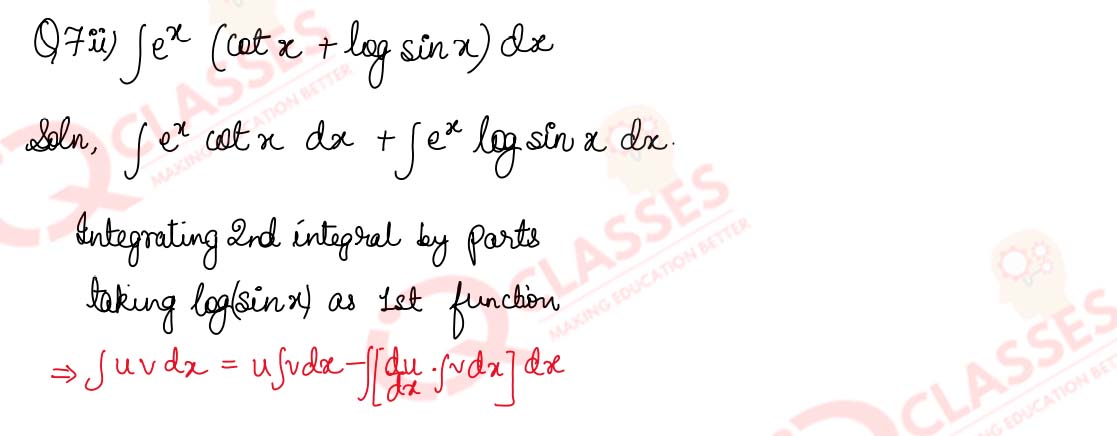 Q7 ii) ∫e^x (cot x + log sin x) dx
Soln, ∫ e^x cot x dx + ∫ e^x log sin x dx.
Integrating 2nd integral by parts
taking log(sin x) as 1st function
⇒ ∫ u v dx = u ∫v dx - ∫[du/dx . ∫v dx] dx
CLASSES
MAKING EDUCATION BETTER
Q CLASSES
MAKING EDUCATION BETTER
Q CLASSES
NG EDUCATION BETTER